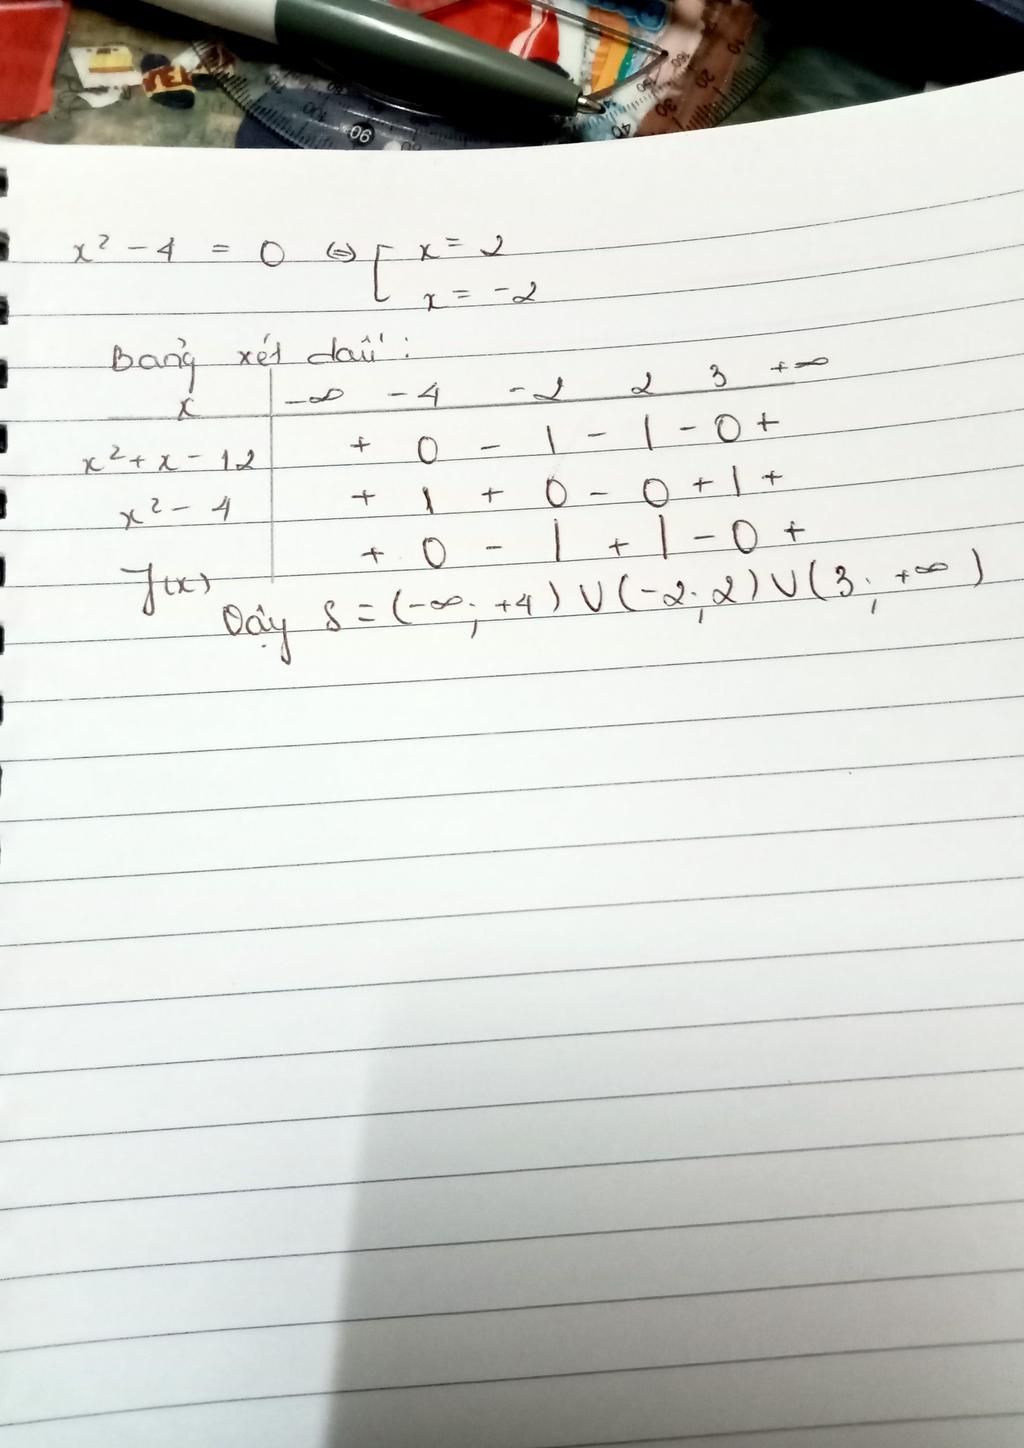 x² - 4 = 0 ⇔ [ x = 2
x = -2
Bảng xét dấu :
x | -∞ -4 -2 2 3 +∞
x² + x - 12 | + 0 - | - | - 0 +
x² - 4 | + | + 0 - 0 + | +
f(x) | + 0 - | + | - 0 +
Vậy S = (-∞; +4) ∪ (-2; 2) ∪ (3; +∞)